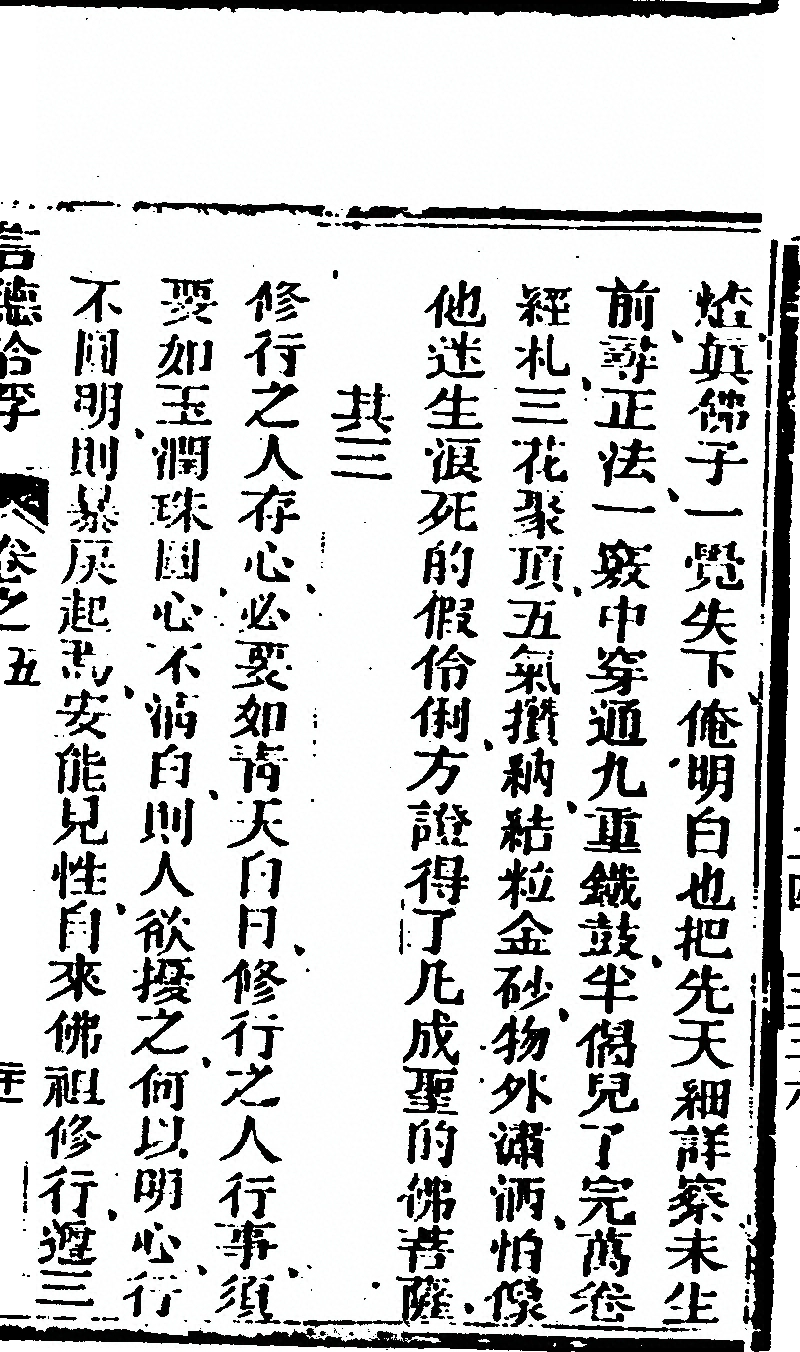 燈真佛子一覺失下俺明白也把先天細詳察未生
前尋正法一竅中穿通九重鐵鼓半偈兒了完萬卷
經札三花聚頂五氣攢納結粒金砂物外瀟洒怕像
他迷生浪死的假伶俐方證得了凡成聖的佛菩薩
其三
修行之人存心必要如青天白日修行之人行事須
要如玉潤珠圓心不滿白則人欲擾之何以明心行
不圓明則暴戾起焉安能見性自來佛祖修行遲三
卷之五